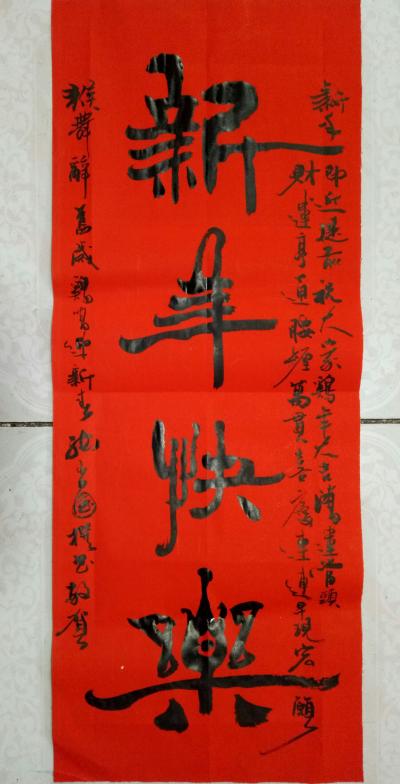 新年即近提前祝大家鷄年大吉鴻運當頭
財運亨通腰纏萬貫喜慶連連早現宏願
新年快樂
猴舞辭舊歲鷄新春撰書敬賀